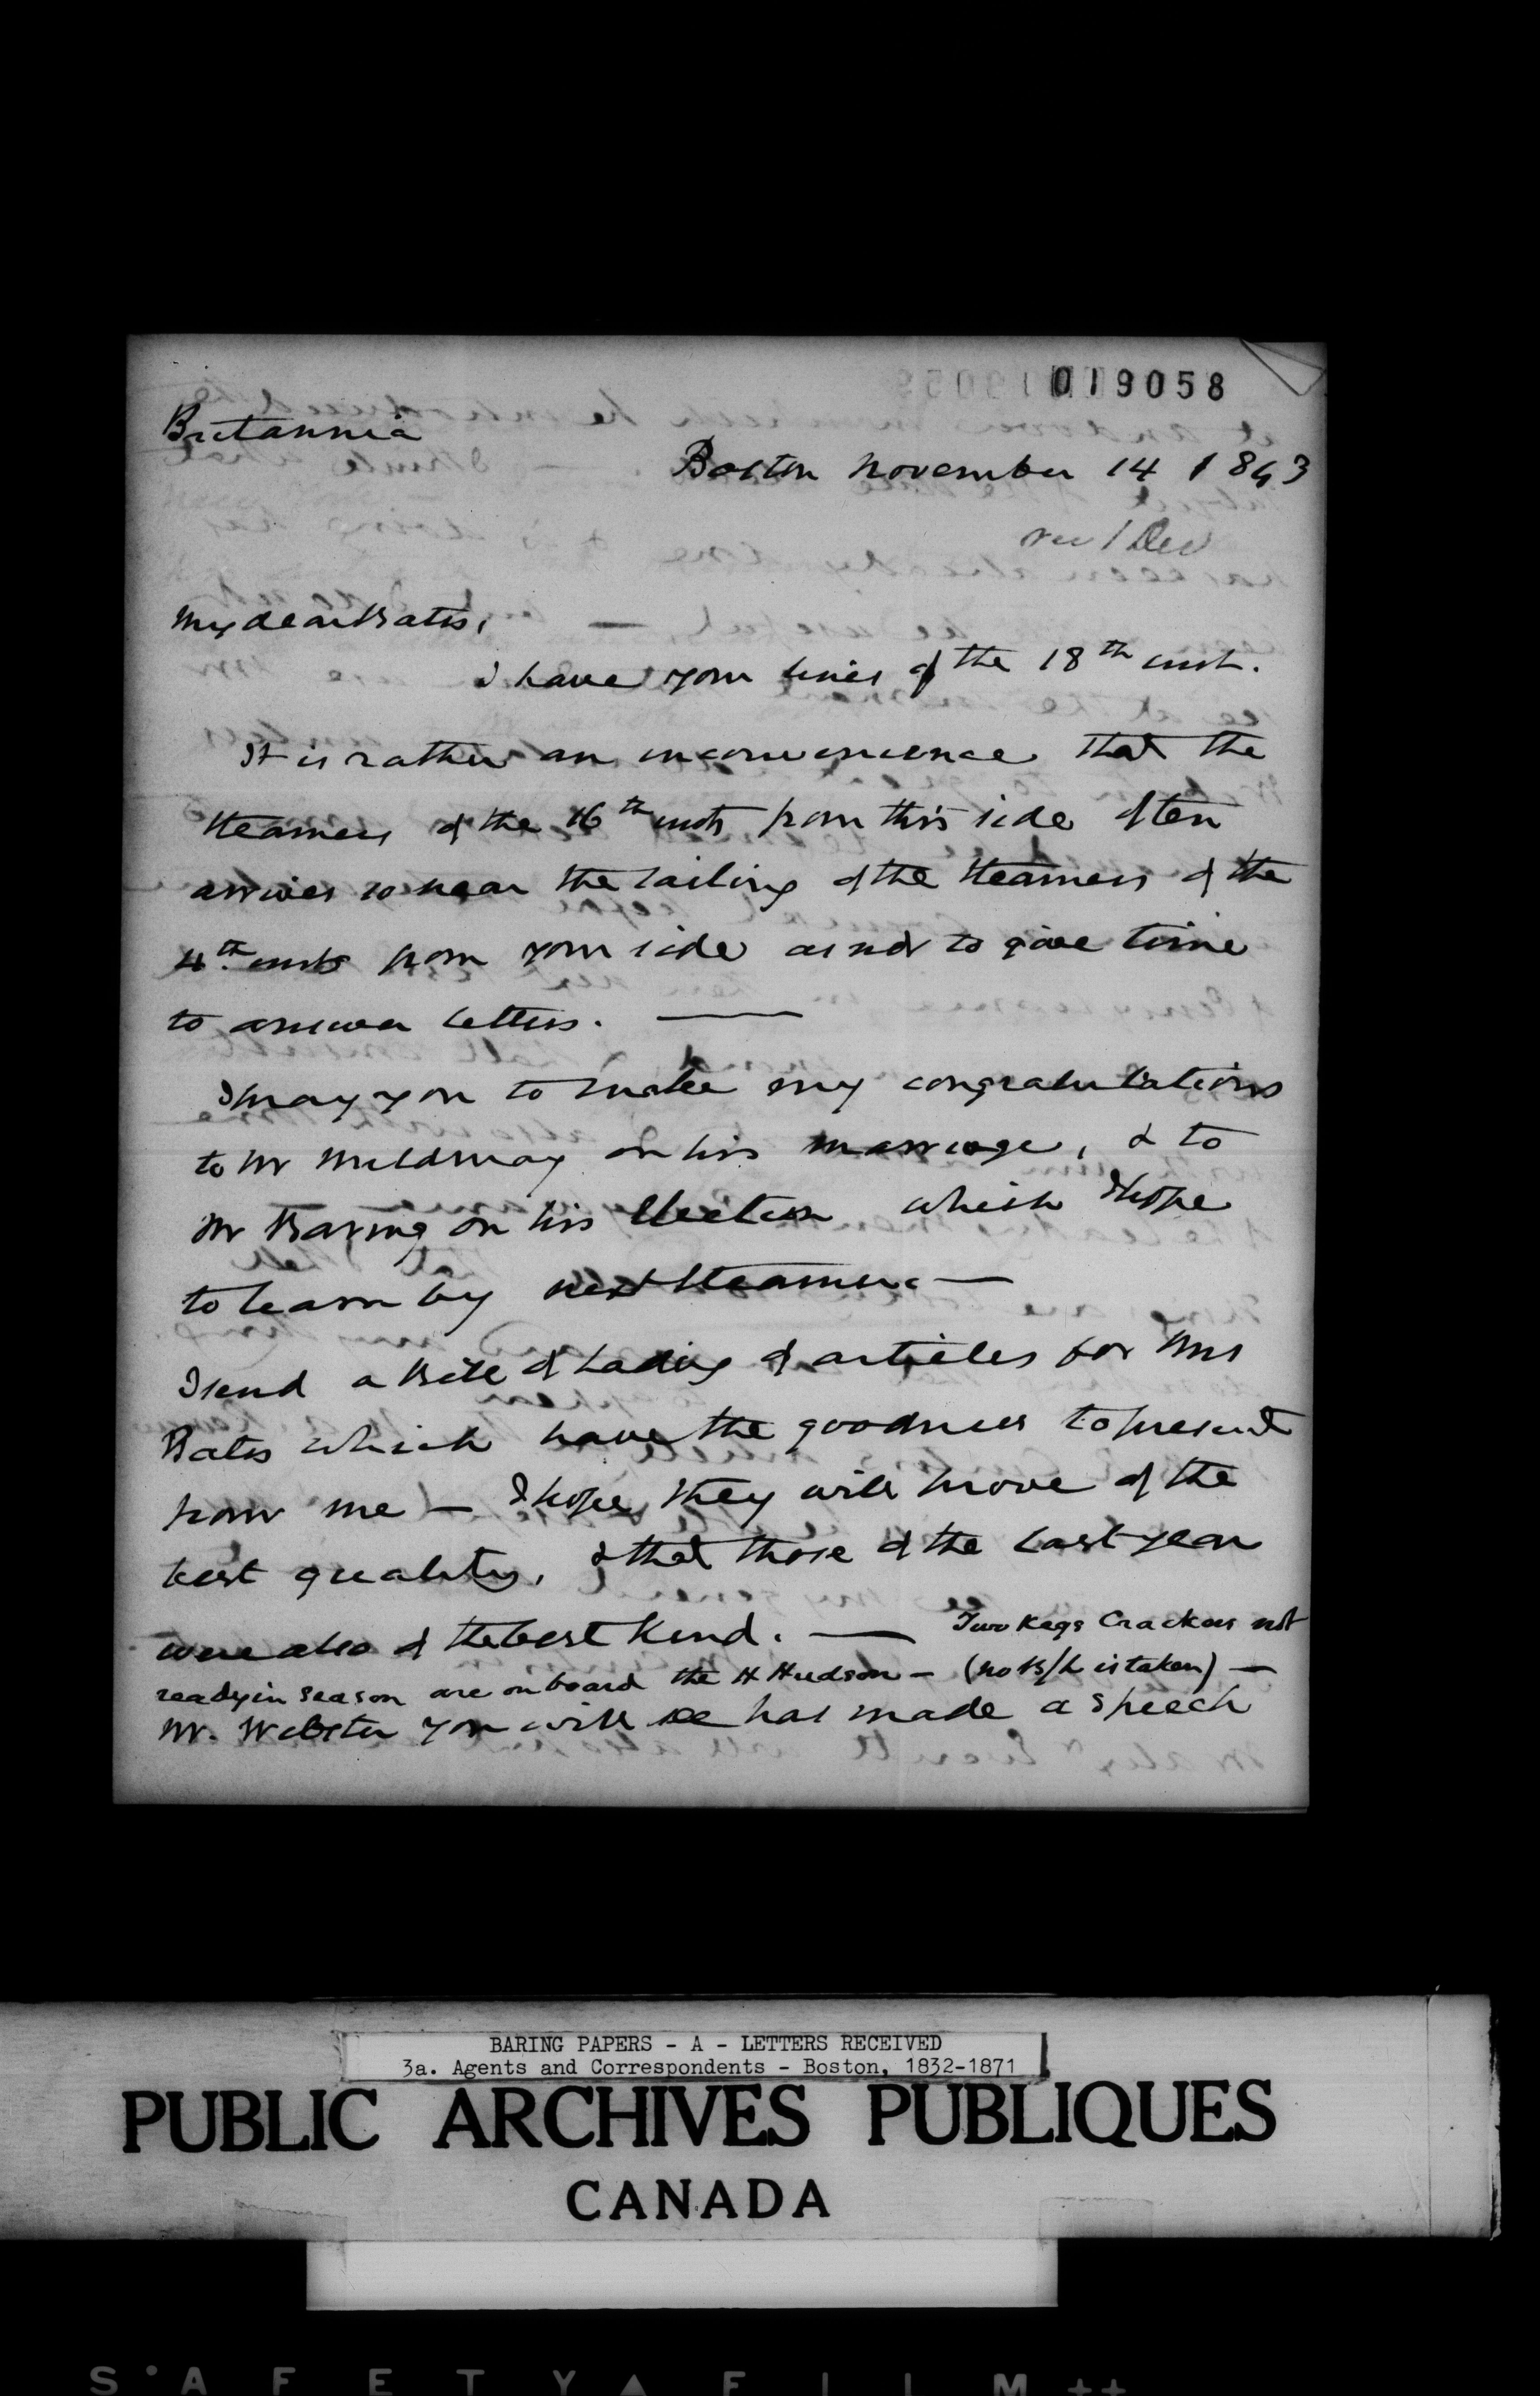 019058
Britannia
Boston November 14 1843
rec 1 Dec
My dear Bates,
I have your lines of the 18th inst.
It is rather an inconvenience that the
steamers of the 16th inst from this side often
arrives so near the sailing of the steamers of the
4th inst from your side as not to give time
to answer letters. —
I pray you to make my congratulations
to Mr Mildmay on his marriage, & to
Mr Baring on his Election which I hope
to learn by next steamer. —
I send a Bill of Lading of articles for Mrs
Bates which have the goodness to present
from me — I hope they will prove of the
best quality, & that those of the last year
were also of the best kind. — Two Kegs Crackers not
ready in season are on board the H Hudson — (no B/L is taken) —
Mr. Webster you will see has made a speech
BARING PAPERS - A - LETTERS RECEIVED
3a. Agents and Correspondents - Boston, 1832-1871
PUBLIC ARCHIVES PUBLIQUES
CANADA
S A F E T Y ▲ F I L M ++